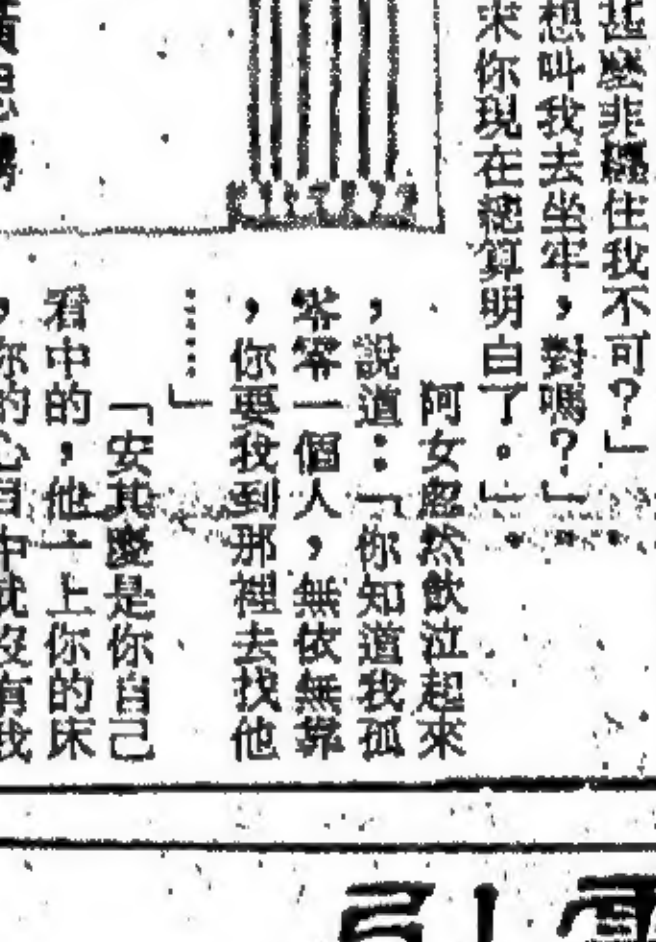 甚麼非纏住我不可？」
想叫我去坐牢，對嗎？」
你現在總算明白了。」
阿女忽然飲泣起來
，說道：「你知道我孤
零零一個人，無依無靠
，你要我到那裡去找他
……」
「安其麼是你自己
看中的，他一上你的床
，你的心目中就沒有我